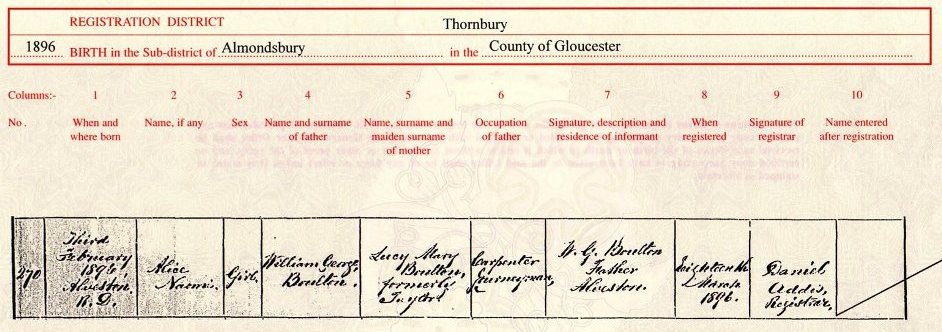 REGISTRATION DISTRICT Thornbury
1896 BIRTH in the Sub-district of Almondsbury in the County of Gloucester
Columns:- 1 2 3 4 5 6 7 8 9 10
No. When and where born Name, if any Sex Name and surname of father Name, surname and maiden surname of mother Occupation of father Signature, description and residence of informant When registered Signature of registrar Name entered after registration
270
Third
February
1896,
Alveston.
R. D.
Alice
Naomi.
Girl.
William George
Boulton.
Lucy Mary
Boulton,
formerly
Taylor.
Carpenter
Journeyman
W. G. Boulton
Father
Alveston.
Eighteenth
March
1896.
Daniel
Addis,
Registrar.